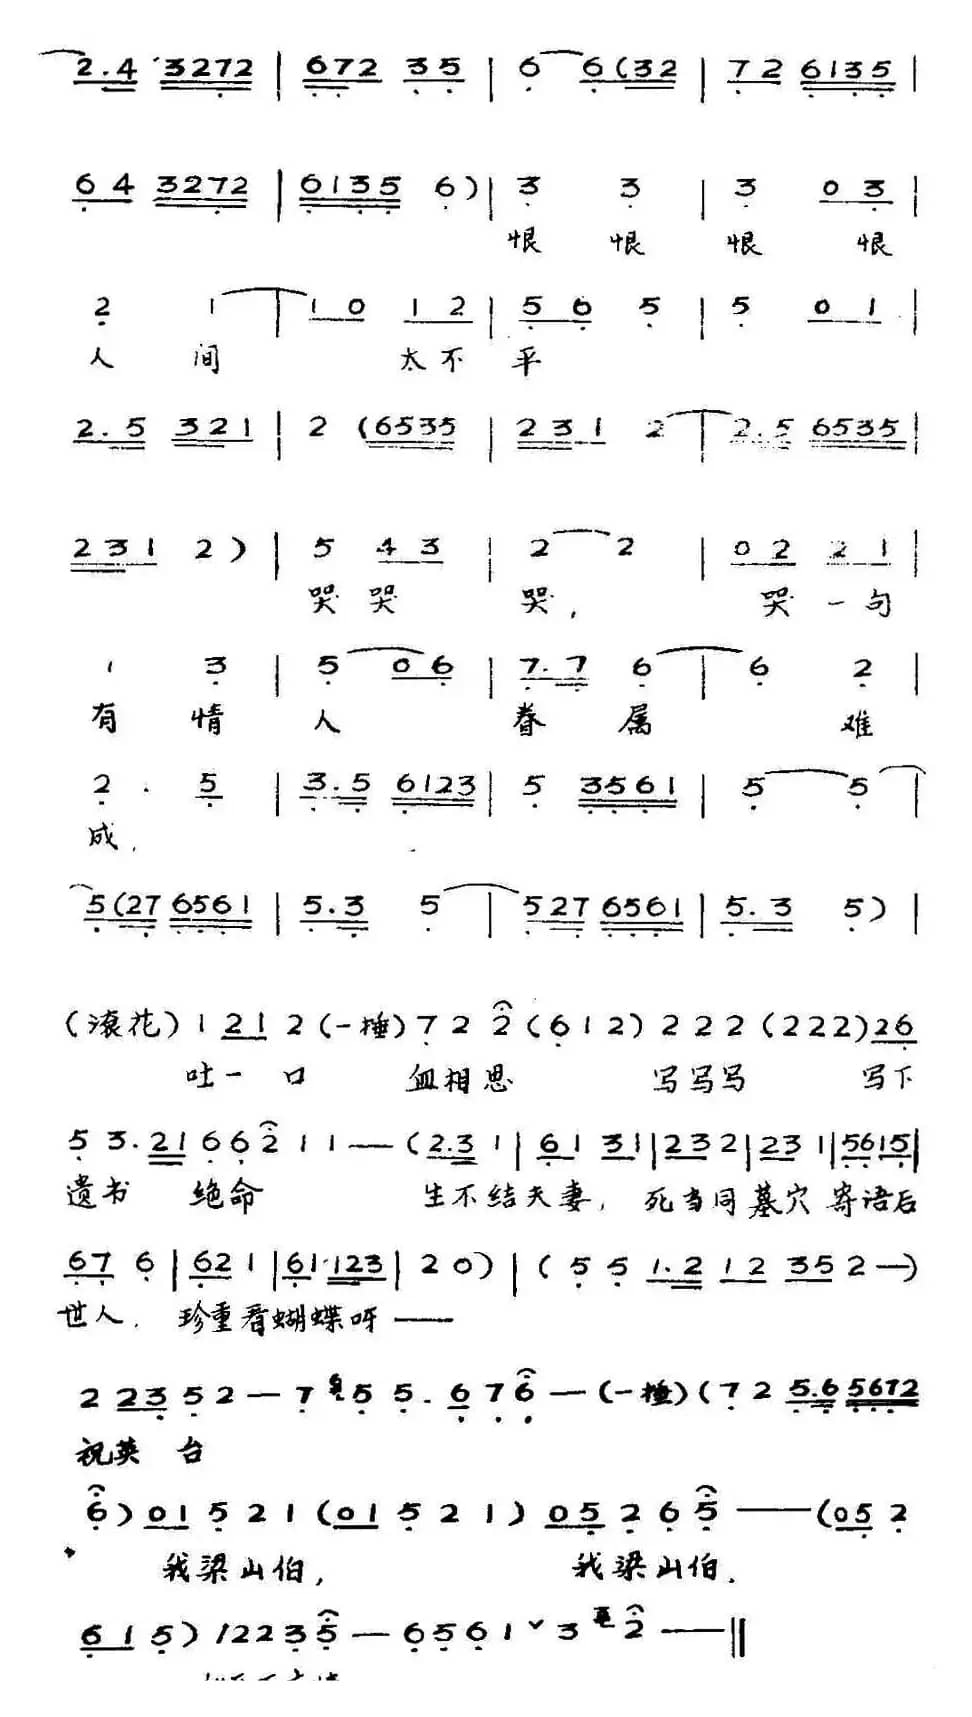 2.4 3272 | 672 35 | 6 6(32 | 72 6135 |
64 3272 | 6135 6) | 3 3 | 3 03 |
恨 恨 恨 恨
2 1 | 10 12 | 56 5 | 5 01 |
人 间 太不 平
2.5 321 | 2 (6535 | 231 2 | 2.5 6535 |
231 2) | 5 43 | 2 2 | 02 21 |
哭 哭 哭, 哭 一句
1 3 | 5 06 | 7.7 6 | 6 2 |
有 情 人 眷 属 难
2 . 5 | 3.5 6123 | 5 3561 | 5 5 |
成,
5(27 6561 | 5.3 5 | 527 6561 | 5.3 5) |
(滚花) 1 21 2 (一捶) 7 2 2 (612) 222 (222) 26
吐一 口 血相思 写写写 写下
5 3. 21 6 6 2 1 1 — (2.3 1 | 61 31 | 232 | 23 1 | 5615 |
遗书 绝命 生不结夫妻, 死当同墓穴 寄语后
67 6 | 62 1 | 61·123 | 2 0) | ( 5 5 1.2 12 352 —)
世人, 珍重看蝴蝶呀 ——
2 23 5 2 — 7 5 5. 6 7 6 — (一捶) (7 2 5.6 5672
祝英 台
6) 01 5 21 (01 5 21) 05 2 6 5 —— (05 2
我梁山伯, 我梁山伯.
61 5) 1223 5 — 6561 ˅ 3 2 —— ‖